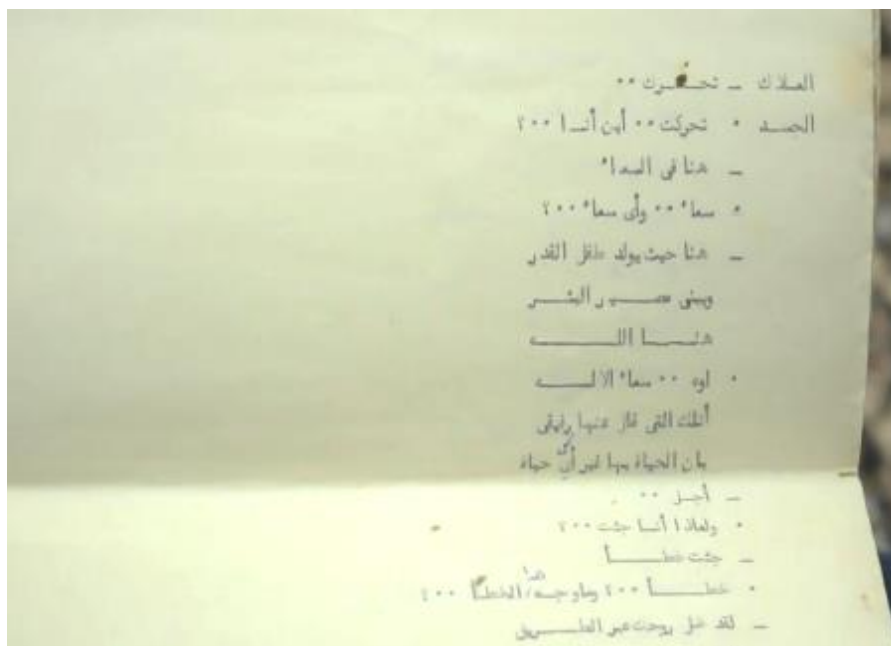 الملاك - تحـــرك ٠٠
الجســد ٠ تحركت ٠٠ أين أنــا ٠٠؟
- هنا فى السماء
٠ سماء ٠٠ وأى سماء ٠٠؟
- هنا حيث يولد طفل القدر
ويبنى مصـــير البشـــر
هنـــا اللــــه
٠ اوه ٠٠ سماء الالـــه
أتلك التى قال عنها رفيقى
بان الحياة بها غير أى حياة
- أجــل ٠٠
٠ ولماذا أنــا جئت ٠٠؟
- جئت خطــــأ
٠ خطــــأ ٠٠؟ وماوجــه هذا الخطــأ ٠٠؟
- لقد ضل روحك عبر الطـــريق